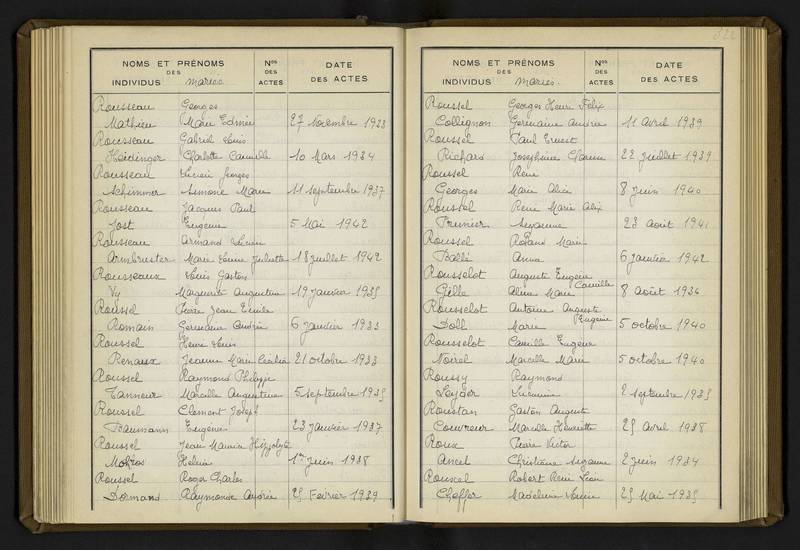 NOMS ET PRÉNOMS
DES
INDIVIDUS Mariés
Nos
DES
ACTES
DATE
DES ACTES
Rousseau Georges
Mathieu Marie Edmée 27 Novembre 1933
Rousseau Gabriel Louis
Heidinger Charlotte Camille 10 Mars 1934
Rousseau Lucien Georges
Schimmer Simone Marie 11 septembre 1937
Rousseau Jacques Paul
Jost Eugénie 5 Mai 1942
Rousseau Armand Lucien
Armbruster Marie Louise Juliette 18 juillet 1942
Rousseaux Louis Gaston
Vy Marguerite Augustine 19 janvier 1935
Roussel Pierre Jean Emile
Romain Germaine Andrée 6 janvier 1933
Roussel Henri Louis
Renaux Jeanne Marie 21 octobre 1933
Roussel Raymond Philippe
Tanneur Marcelle Augustine 5 septembre 1935
Roussel Clément Joseph
Baumann Eugénie 23 janvier 1937
Roussel Jean Maurice Hippolyte
Hélène 1er juin 1938
Roussel Roger Charles
Dormand Raymonde Andrée 25 Février 1939
NOMS ET PRÉNOMS
DES
INDIVIDUS Mariés
Nos
DES
ACTES
DATE
DES ACTES
Roussel Georges Henri Félix
Collignon Germaine Andrée 11 Avril 1939
Roussel Paul Ernest
Richard Joséphine 22 juillet 1939
Roussel René
Georges Marie Alice 8 juin 1940
Roussel René Marie Alix
Prunier Suzanne 23 août 1941
Roussel Roland Marie
Anna 6 janvier 1942
Rousselot Auguste Eugène Camille
Gille Aline Marie 8 août 1936
Rousselot Antoine Auguste Eugène
Doll Marie 5 octobre 1940
Rousselot Camille Eugène
Noirel Marcelle Marie 5 octobre 1940
Roussy Raymond
Leyder Lucienne 2 septembre 1935
Roustan Gaston Auguste
Couvreur Marcelle Henriette 25 Avril 1938
Roux Pierre Victor
Ancel Christiane Suzanne 2 juin 1934
Rouxel Robert René Léon
Cheffer Madeleine Louise 25 Mai 1935